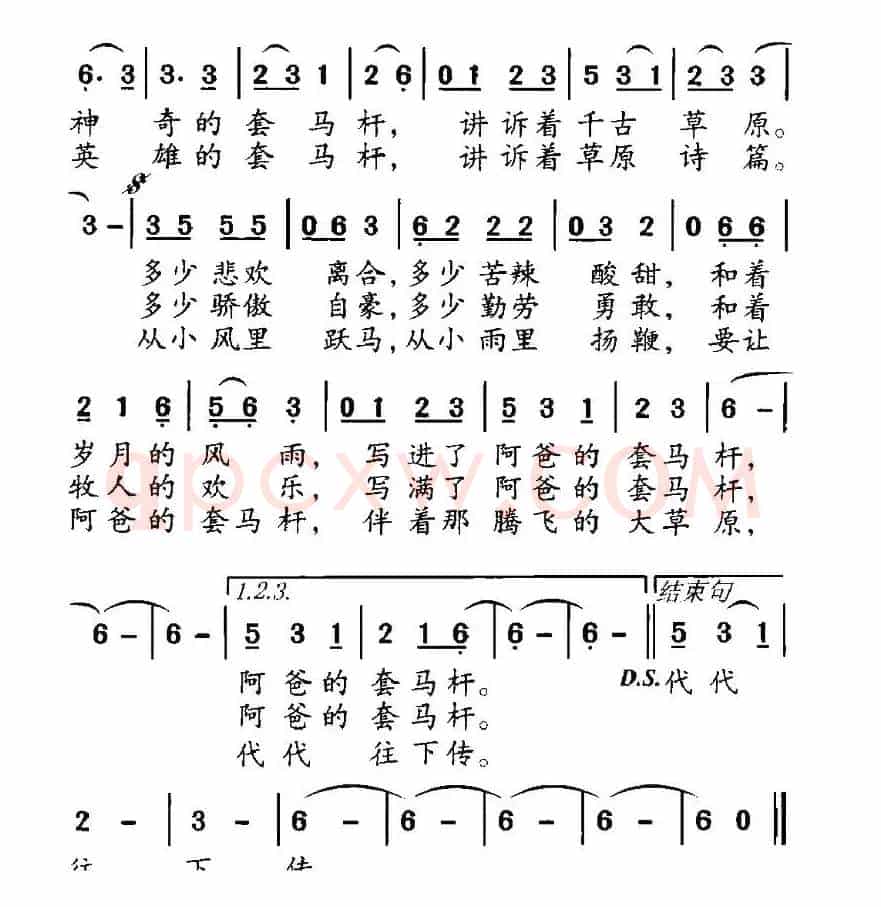 6. 3 | 3. 3 | 2 3 1 | 2 6 | 0 1 2 3 | 5 3 1 | 2 3 3 |
神 奇的 套 马 杆， 讲诉着千古 草 原。
英 雄的 套 马 杆， 讲诉着草原 诗 篇。
3 - | 3 5 5 5 | 0 6 3 | 6 2 2 2 | 0 3 2 | 0 6 6 |
多少 悲欢 离合，多少 苦辣 酸甜，和着
多少 骄傲 自豪，多少 勤劳 勇敢，和着
从小 风里 跃马，从小 雨里 扬鞭，要让
2 1 6 | 5 6 3 | 0 1 2 3 | 5 3 1 | 2 3 | 6 - |
岁月的 风 雨，写进了 阿爸的 套马杆，
牧人的 欢 乐，写满了 阿爸的 套马杆，
阿爸的 套马杆，伴着那 腾飞的 大草原，
gpcxw.COM
1.2.3. 结束句
6 - | 6 - | 5 3 1 | 2 1 6 | 6 - | 6 - || 5 3 1 |
阿爸的 套马杆。 D.S. 代代
阿爸的 套马杆。
代代 往下传。
2 - | 3 - | 6 - | 6 - | 6 - | 6 - | 6 0 ||
往 下 传